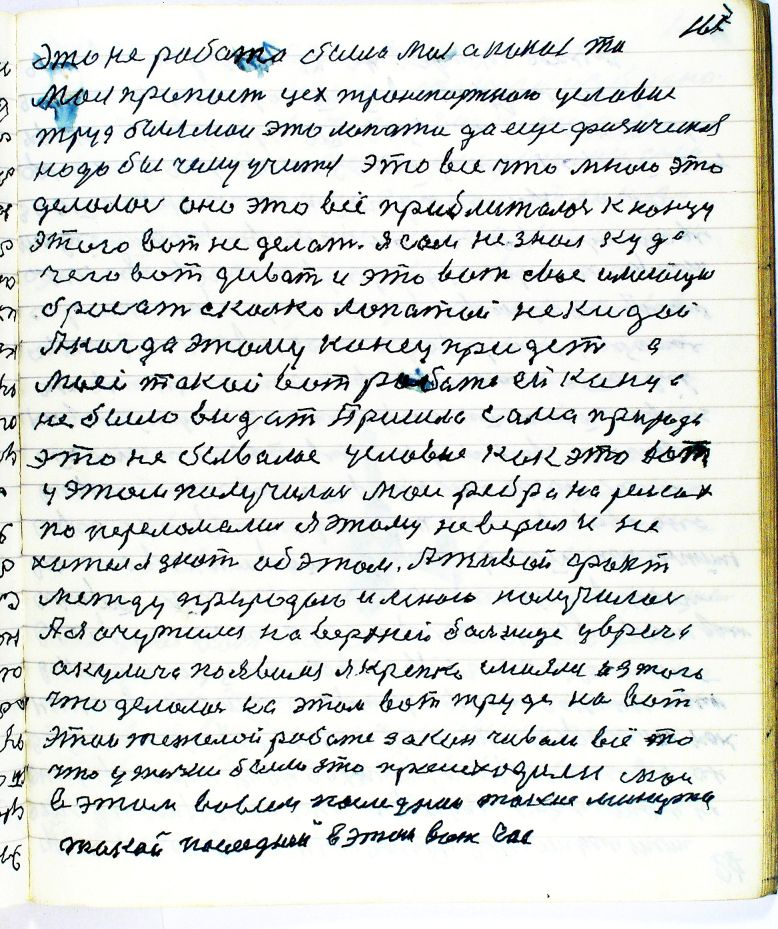 167
это не работа была моя а кокая то
моя пропост цех транспортною условие
труд был мои это лопата да еще физическая
надо бы чему учится это все что много это
делолос оно это всё приблиталос к концу
этого вот не делат. я сам не знал куда
чего вот диват и это вот свое имеющие
бросат сколко лопатой не кидай
А когда этому конец придет а
моей такой вот работе ей конца
не было видат Пришла сама природа
это не бывалое условие как это вот
у этом получилос мои ребра на релсах
по переломалис я этому не верил и не
хотел ждот об этом. А живой факт
между природою и мною получилос
А я очутился на верхней болнице у врача
акулича появился я крепко смаяли з этого
что делолос на этом вот труде на вот
этои тежелой работе закон чивали всё то
что у тачки было это происходили мои
в этом во всем последнии такие минуты
такой последний в этои вот час